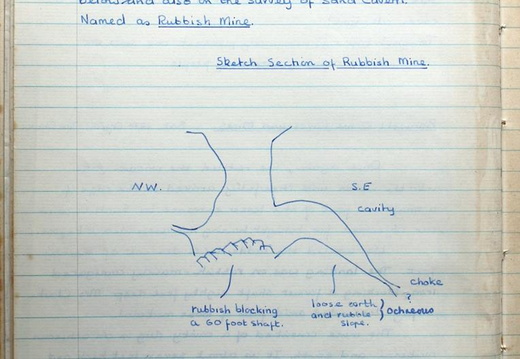 below and also on the survey of Sand Cavern.
Named as Rubbish Mine.
Sketch Section of Rubbish Mine.
N.W.
S.E
cavity
choke
?
rubbish blocking
a 60 foot shaft.
loose earth
and rubble
slope.
Ochreous